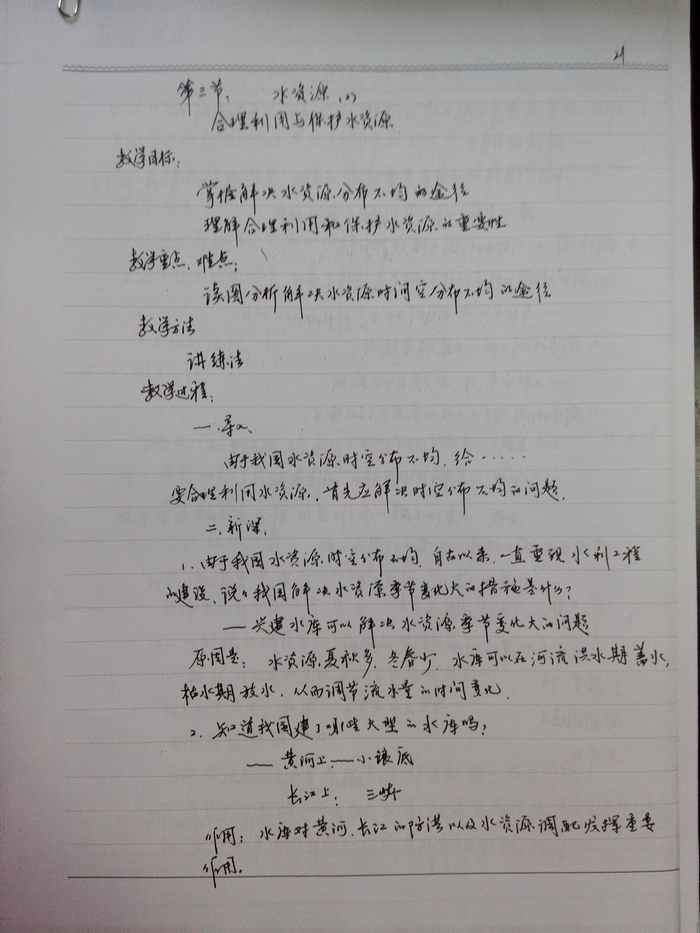 21
第三节: 水资源(2)
合理利用与保护水资源
教学目标:
掌握解决水资源分布不均的途径
理解合理利用和保护水资源的重要性
教学重点、难点:
读图分析解决水资源时间空分布不均的途径
教学方法
讲练法
教学过程:
一、导入
由于我国水资源时空分布不均, 给······
要合理利用水资源, 首先应解决时空分布不均的问题.
二、新课.
1、由于我国水资源时空分布不均, 自古以来, 一直重视水利工程
的建设, 说说我国解决水资源季节变化大的措施是什么?
— 兴建水库可以解决水资源季节变化大的问题
原因是: 水资源夏秋多, 冬春少, 水库可以在河流洪水期蓄水,
枯水期放水, 从而调节流水量的时间变化.
2、知道我国建了哪些大型的水库吗?
— 黄河上:—小浪底
长江上: 三峡
作用: 水库对黄河、长江的防洪以及水资源调配发挥重要
作用.